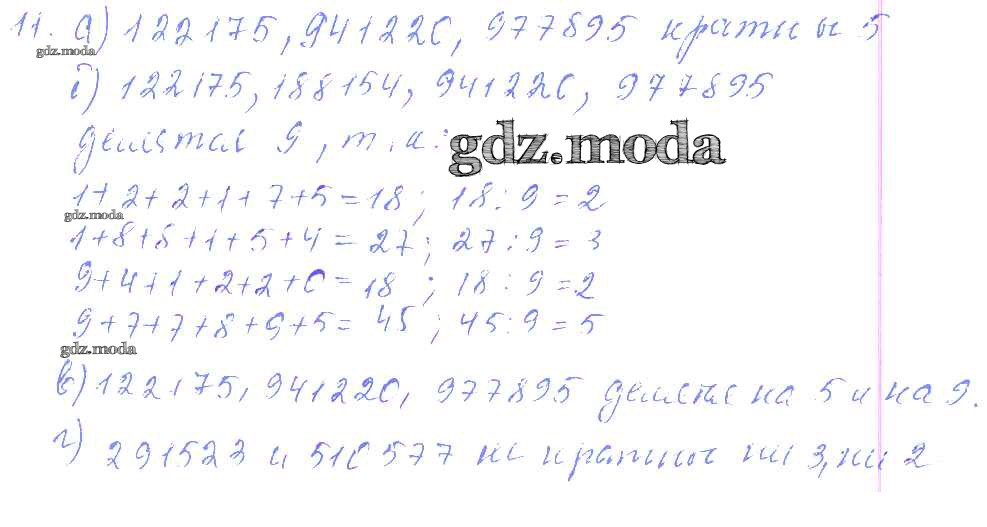 11. а) 122175, 941220, 977895 кратны 5
gdz.moda
б) 122175, 188154, 941220, 977895
делятся 9, т.к: gdz.moda
1+2+2+1+7+5=18; 18:9=2
gdz.moda
1+8+8+1+5+4=27; 27:9=3
9+4+1+2+2+0=18; 18:9=2
9+7+7+8+9+5=45; 45:9=5
gdz.moda
в) 122175, 941220, 977895 делятся на 5 и на 9.
г) 291523 и 510577 не кратные ни 3, ни 2